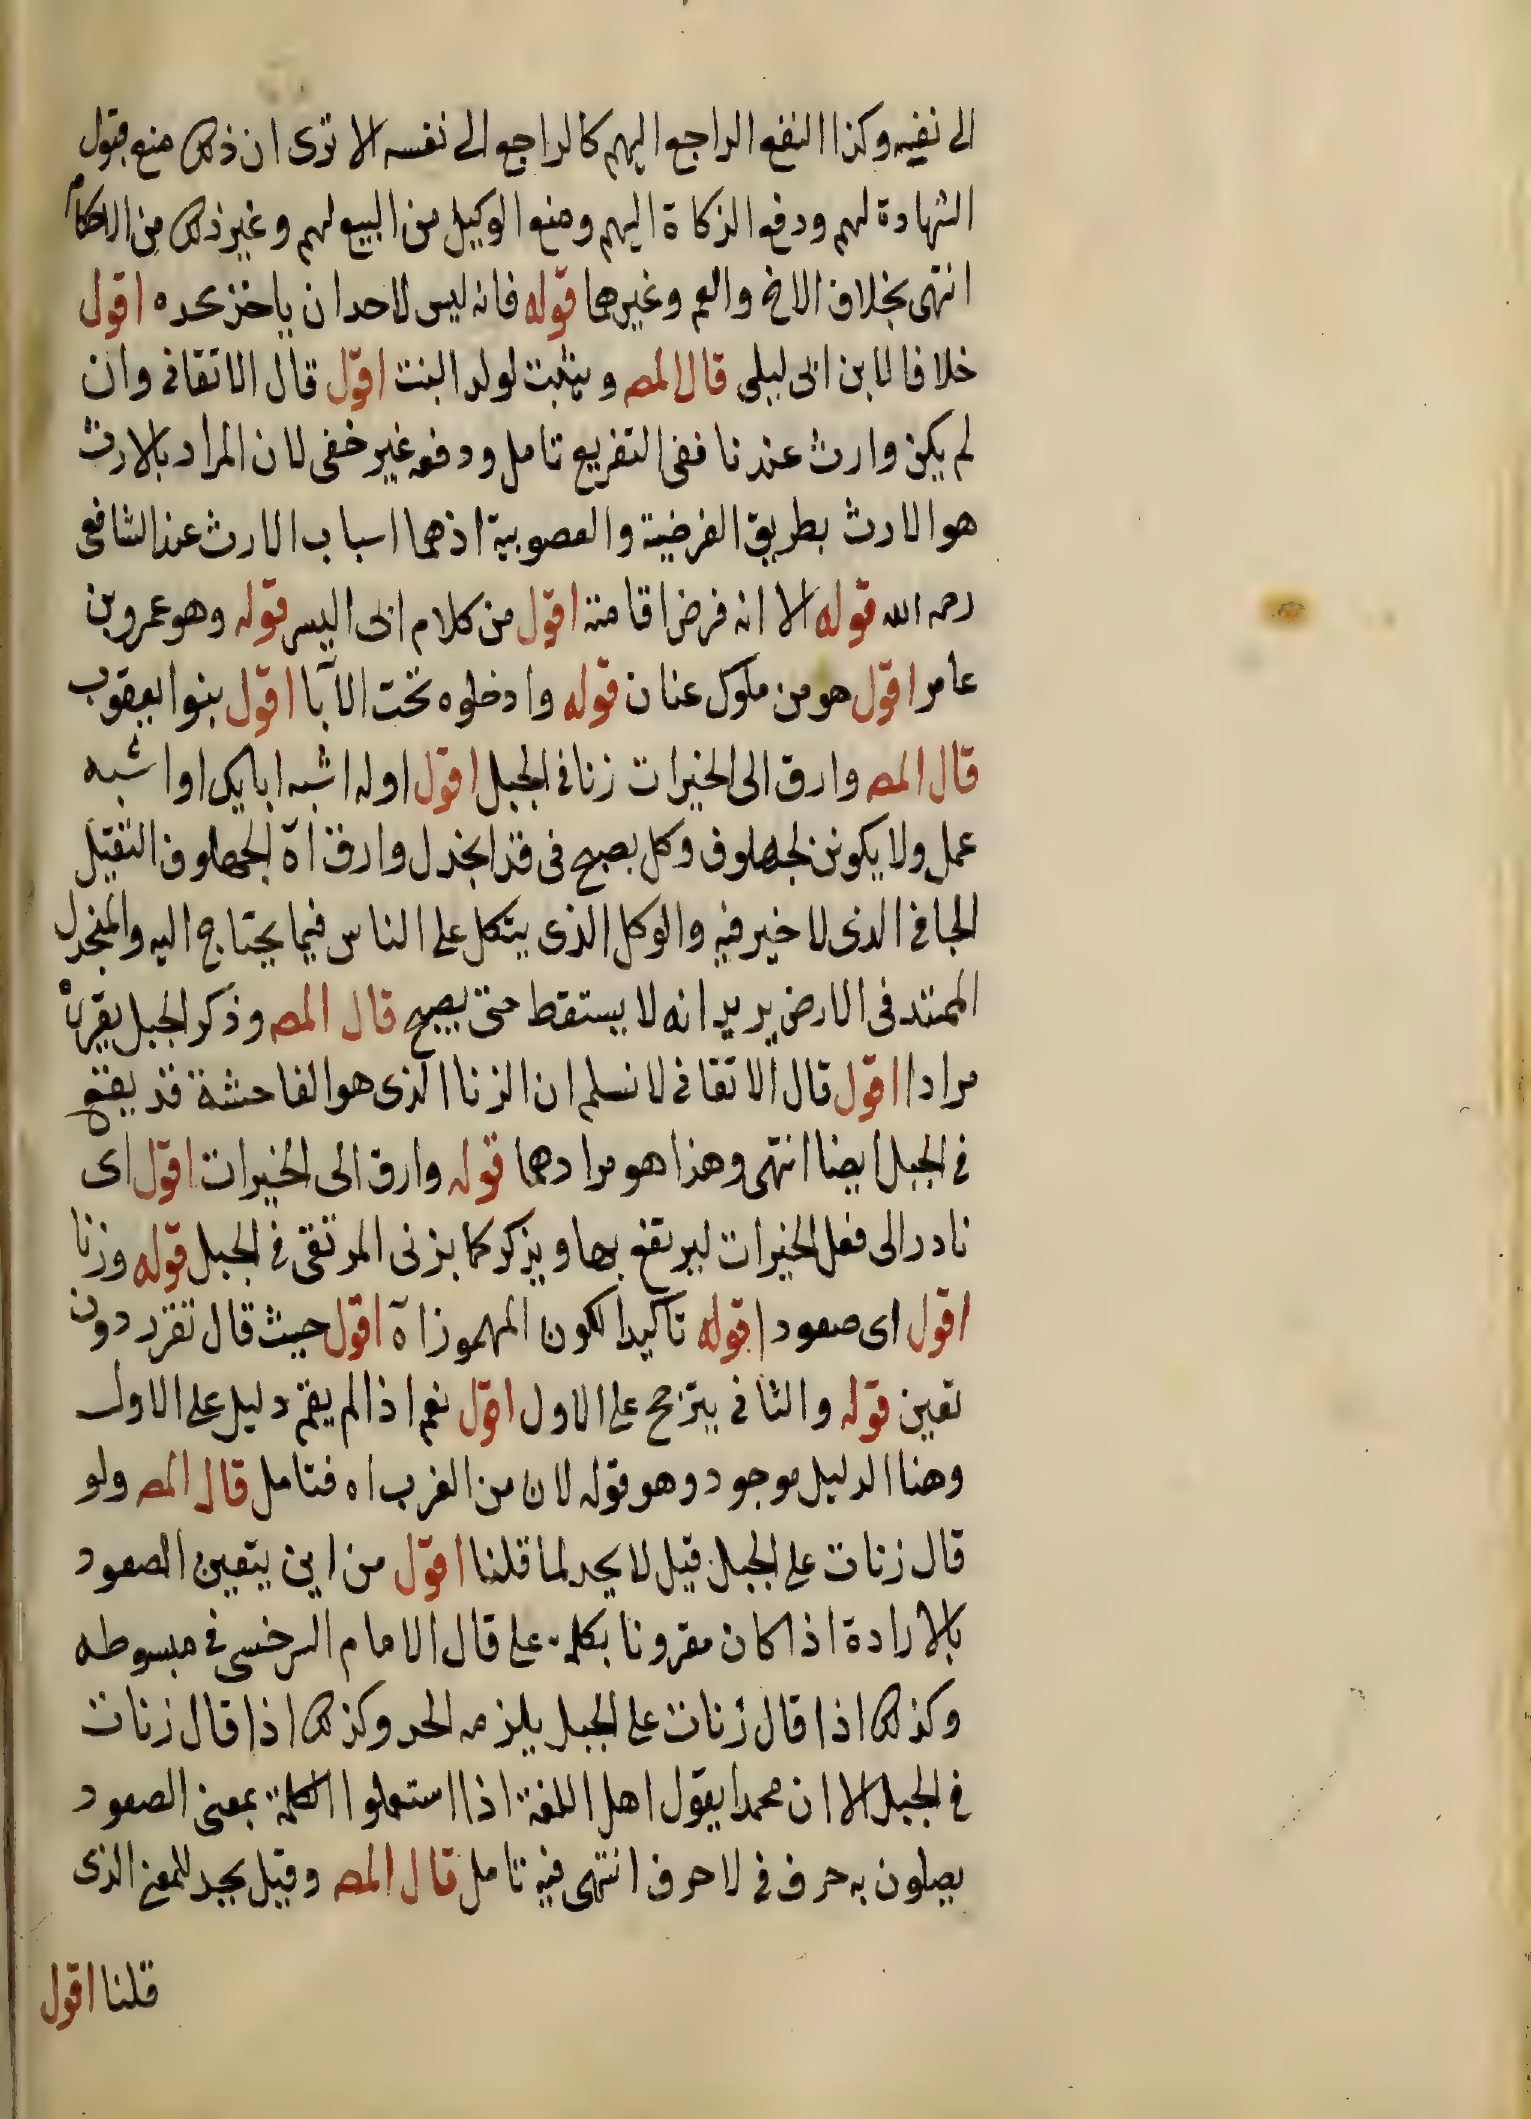 الى نفيه وكذا النفع الراجع اليهم كالراجع الى نفسه الا ترى ان ذلك منع قبول
الشهادة لهم ودفع الزكاة اليهم ومنع الوكيل من البيع لهم وغير ذلك من الاحكام
انتهى بخلاف الاخ والعم وغيرهما قوله فانه ليس لاحد ان ياخذ بحده اقول
خلافا لابن ابى ليلى قال المص ويثبت لولد البنت اقول قال الاتقانى وان
لم يكن وارث عندنا ففى التفريع تامل ودفعه غير خفى لان المراد بالارث
هو الارث بطريق الفرضية والعصوبية اذ هما اسباب الارث عند الشافعى
رحمه الله قوله الا انه فرض اقامته اقول من كلام ابى اليسر قوله وهو عمرو بن
عامر اقول هو من ملوك عنان قوله وادخلوه تحت الآبا اقول بنو يعقوب
قال المص وارق الى الخيرات زنا فى الجبل اقول اوله اشبه ابا بك او اشبه
عمل ولا يكونن لجهلوف وكل يصبح فى قد انجدل وارق اه الجهلوف الثقيل
الجافى الذى لا خير فيه والوكل الذى يتكل على الناس فيما يحتاج اليه والمنجدل
الممتد فى الارض يريد انه لا يستقط حتى يصبح قال المص وذكر الجبل يقرره
مرادا اقول قال الاتقانى لا نسلم ان الزنا الذى هو الفاحشة قد يقع
فى الجبل ايضا انتهى وهذا هو مرادهما قوله وارق الى الخيرات اقول اى
نادر الى فعل الخيرات ليرتفع بها ويذكر كما يزنى المرتقى فى الجبل قوله وزنا
اقول اى صعودا قوله تأكيدا لكون المهموز اه اقول حيث قال تقرر دون
تعين قوله والثانى يترجح على الاول اقول نعم اذا لم يقم دليل على الاول
وهنا الدليل موجود وهو قوله لان من العرب اه فتامل قال المص ولو
قال زنات على الجبل قيل لا يحد لما قلنا اقول من اين يتعين الصعود
بالارادة اذا كان مقرونا بكلمة على قال الامام السرخسى فى مبسوطه
وكذلك اذا قال زنات على الجبل يلزمه الحد وكذلك اذا قال زنات
فى الجبل الا ان محمدا يقول اهل اللغة اذا استعملوا الكلمة بمعنى الصعود
يصلون به حرف فى لا حرف انتهى فيه تامل قال المص وقيل يحد للمعنى الذى
قلنا اقول